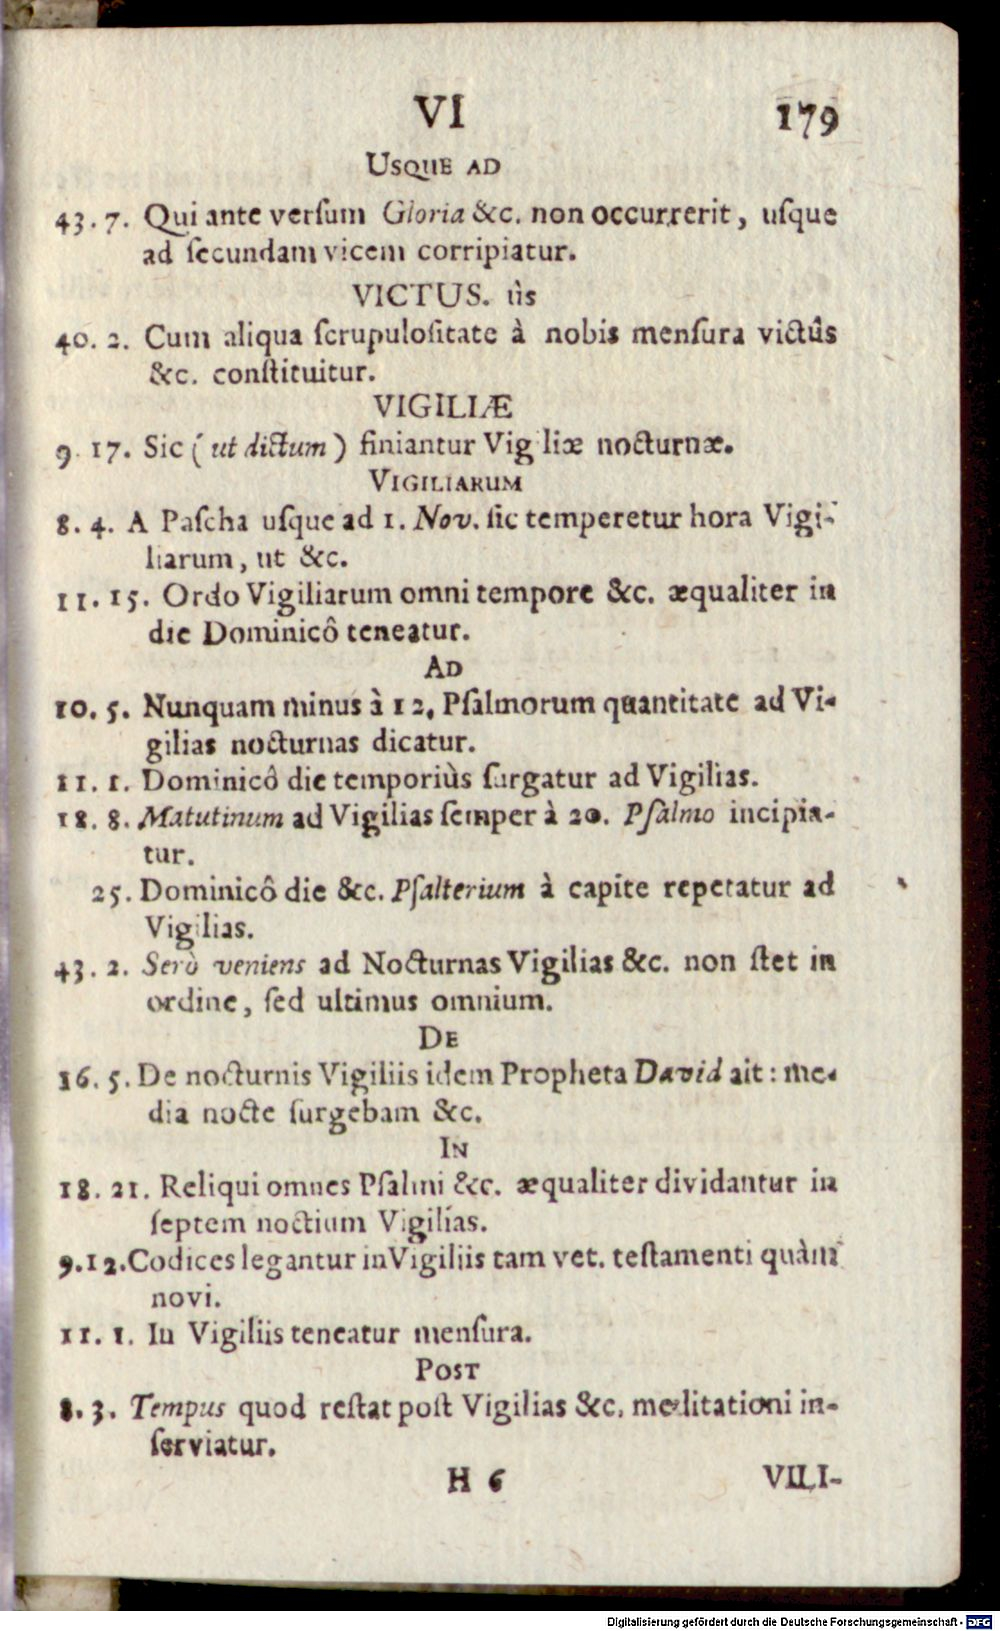 VI 179
USQUE AD
43. 7. Qui ante verſum Gloria &c. non occurrerit, uſque
ad ſecundam vicem corripiatur.
VICTUS. ûs
40. 2. Cum aliqua ſcrupuloſitate à nobis menſura victûs
&c. conſtituitur.
VIGILIÆ
9. 17. Sic ( ut dictum ) finiantur Vigiliæ nocturnæ.
VIGILIARUM
8. 4. A Paſcha uſque ad 1. Nov. ſic temperetur hora Vigi-
liarum, ut &c.
11. 15. Ordo Vigiliarum omni tempore &c. æqualiter in
die Dominicô teneatur.
AD
10. 5. Nunquam minus à 12. Pſalmorum quantitate ad Vi-
gilias nocturnas dicatur.
11. 1. Dominicô die temporiùs ſurgatur ad Vigilias.
18. 8. Matutinum ad Vigilias ſemper à 20. Pſalmo incipia-
tur.
25. Dominicô die &c. Pſalterium à capite repetatur ad
Vigilias.
43. 2. Serò veniens ad Nocturnas Vigilias &c. non ſtet in
ordine, ſed ultimus omnium.
DE
16. 5. De nocturnis Vigiliis idem Propheta David ait: me-
dia nocte ſurgebam &c.
IN
18. 21. Reliqui omnes Pſalmi &c. æqualiter dividantur in
ſeptem noctium Vigilias.
9.12. Codices legantur in Vigiliis tam vet. teſtamenti quàm
novi.
11. 1. In Vigiliis teneatur menſura.
POST
8. 3. Tempus quod reſtat poſt Vigilias &c. meditationi in-
ſerviatur.
H 6 VILI-
Digitalisierung gefördert durch die Deutsche Forschungsgemeinschaft - DFG